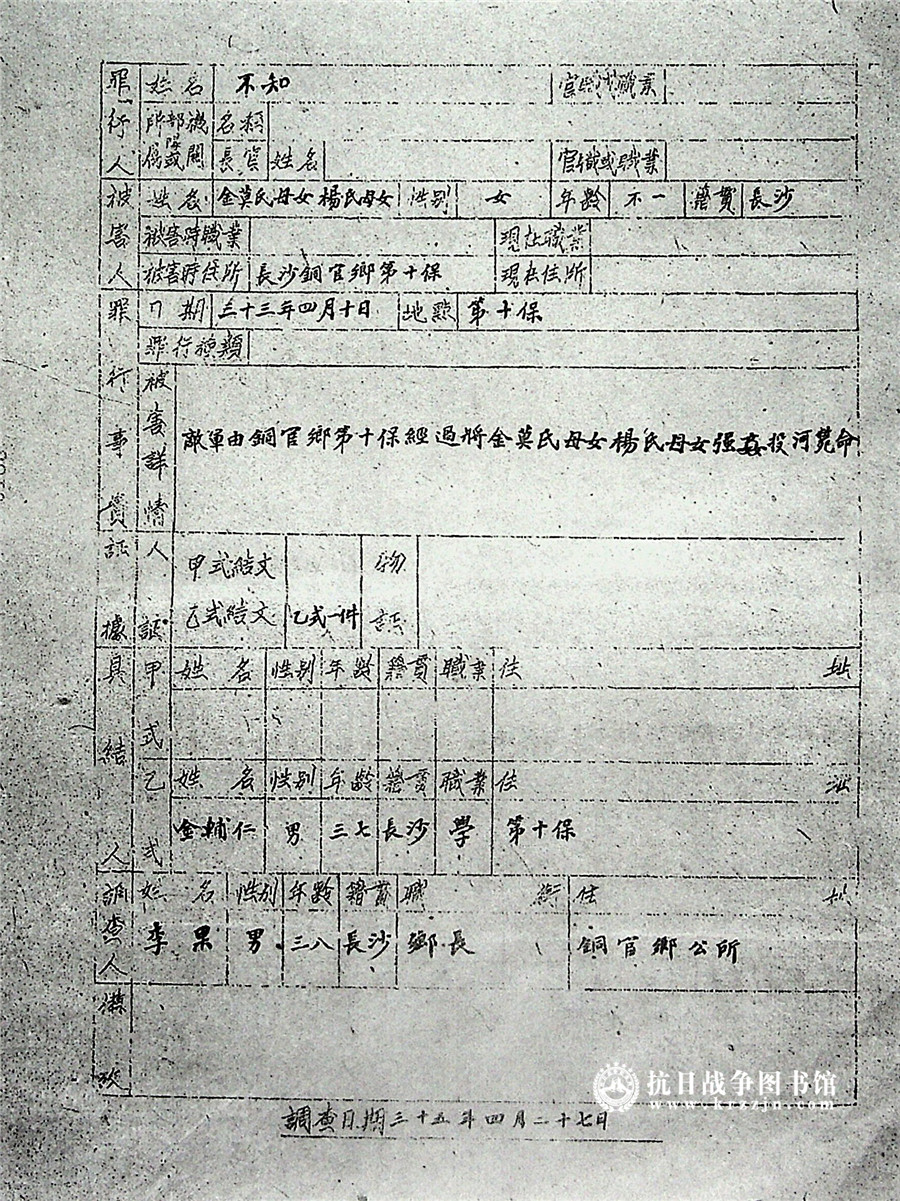 罪行人 姓名 不知 官職或職業
所部機
屬隊或關 名稱
長官 姓名 官職或職業
被害人 姓名 金莫氏母女楊氏母女 性别 女 年齡 不一 籍貫 長沙
被害時職業 現在職業
被害時住所 長沙銅官鄉第十保 現在住所
罪行事實 日期 三十三年四月十日 地點 第十保
罪行種類
被害詳情 敵軍由銅官鄉第十保經過將金莫氏母女楊氏母女强姦投河斃命
証據 人証 甲式結文 物証
乙式結文 乙式一件
具結人 甲式 姓名 性别 年齡 籍貫 職業 住址
乙式 姓名 性别 年齡 籍貫 職業 住址
金輔仁 男 三七 長沙 學 第十保
調查人 姓名 性别 年齡 籍貫 職銜 住址
李杲 男 三八 長沙 鄉長 銅官鄉公所
備攷
調查日期三十五年四月二十七日
抗日战争图书馆
www.krzzjn.com